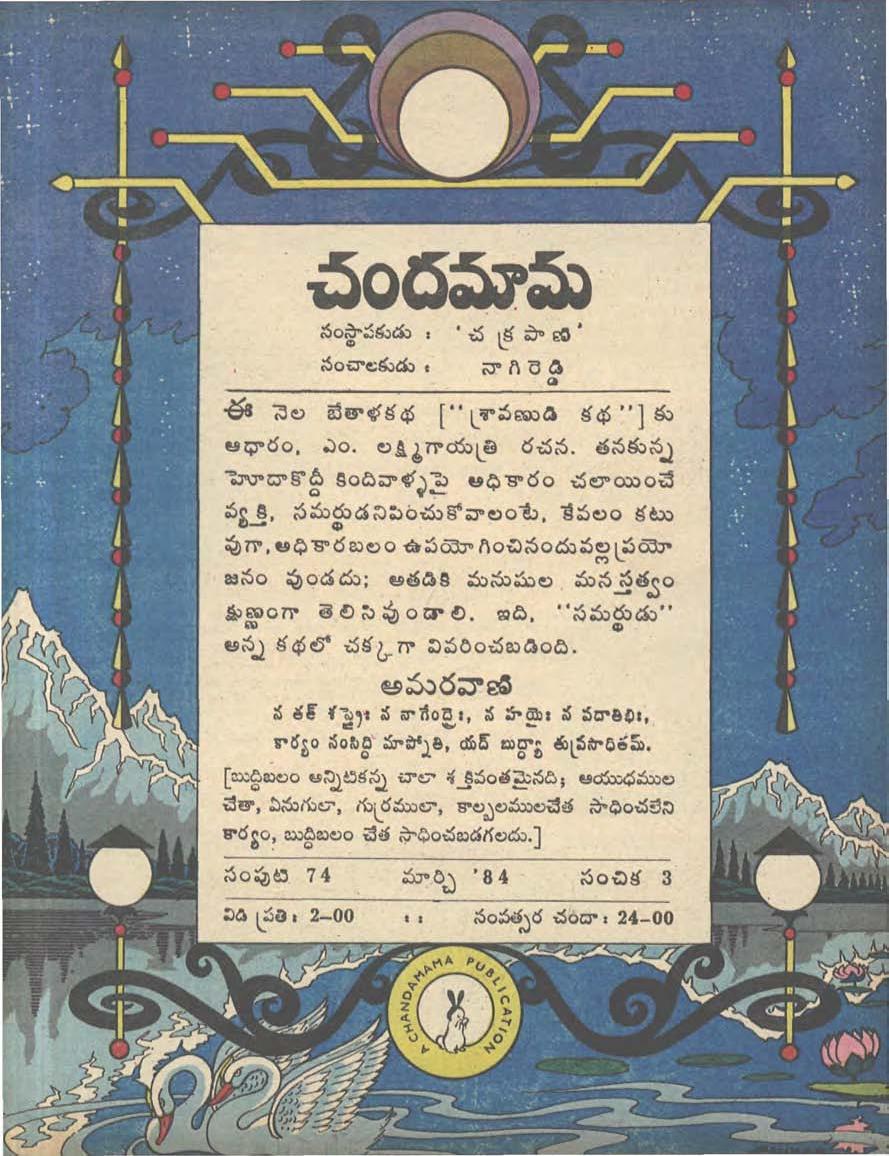 చందమామ
సంస్థాపకుడు : 'చక్రపాణి'
సంచాలకుడు : నాగిరెడ్డి
ఈ నెల బేతాళకథ [''శ్రావణుడి కథ''] కు
ఆధారం, ఎం. లక్ష్మీగాయత్రి రచన. తనకున్న
హెూదాకొద్దీ కిందివాళ్ళపై అధికారం చలాయించే
వ్యక్తి, సమర్థుడనిపించుకోవాలంటే, కేవలం కటు
వుగా, అధికారబలం ఉపయోగించినందువల్ల ప్రయో
జనం వుండదు; అతడికి మనుషుల మనస్తత్వం
క్షుణ్ణంగా తెలిసివుండాలి. ఇది, ''సమర్థుడు''
అన్న కథలో చక్కగా వివరించబడింది.
అమరవాణి
న తత్ శస్త్రైః న నాగేంద్రైః, న హయైః న పదాతిభిః,
కార్యం సంసిద్ధి మాప్నోతి, యద్ బుద్ధ్యా తు ప్రసాధితమ్.
[బుద్ధిబలం అన్నిటికన్న చాలా శక్తివంతమైనది; ఆయుధముల
చేతా, ఏనుగులా, గుర్రములా, కాల్బలములచేత సాధించలేని
కార్యం, బుద్ధిబలం చేత సాధించబడగలదు.]
సంపుటి 74 మార్చి '84 సంచిక 3
విడి ప్రతి : 2–00 : : సంవత్సర చందా : 24–00
A CHANDAMAMA PUBLICATION